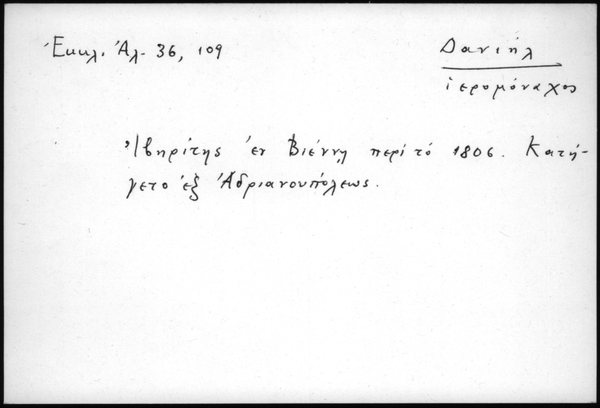 Ἐκκλ. Ἀλ. 36, 109
Δανιήλ
ἱερομόναχος
Ἰβηρίτης ἐν Βιέννῃ περὶ τὸ 1806. Κατή-
γετο ἐξ Ἀδριανουπόλεως.